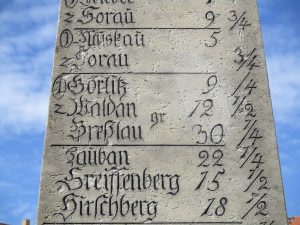 z Sorau 9 3/4
z Sorau 3/4
Görlitz 9 1/4
z Waldau 12 1/2
gr Breslau 30 1/4
Lauban 22 1/4
Greiffenberg 15 1/2
Hirschberg 18 1/2